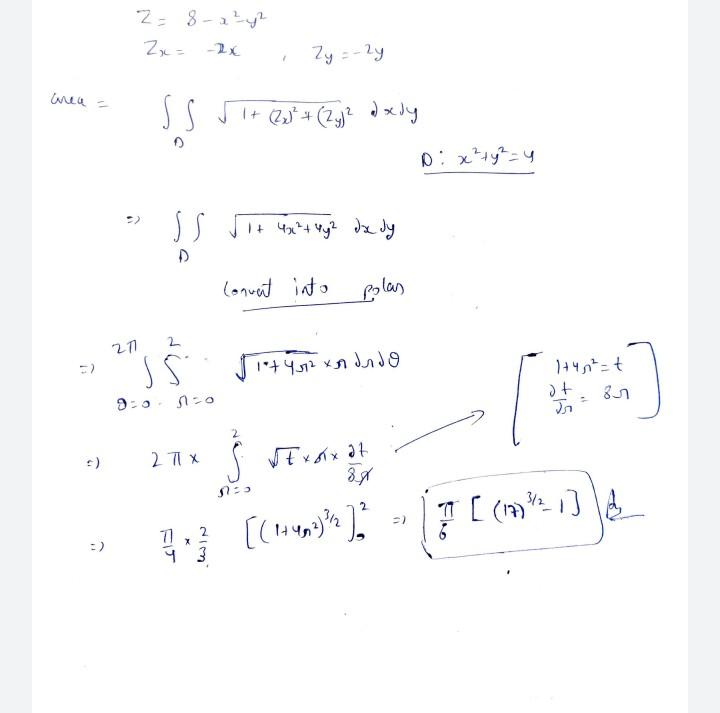 Z = 8 - x² - y²
Zx = -2x , Zy = -2y
area = ∫∫_D √(1 + (Zx)² + (Zy)²) dxdy
D: x² + y² = 4
=> ∫∫_D √(1 + 4x² + 4y²) dx dy
Convert into polar
=> ∫_{θ=0}^{2π} ∫_{r=0}^{2} √(1 + 4r²) × r dr dθ
[ 1 + 4r² = t
∂t/∂r = 8r ]
=> 2π × ∫_{r=0}^{2} √t × r × ∂t/8r
=> π/4 × 2/3 [(1 + 4r²)^{3/2}]_0^2 => π/6 [(17)^{3/2} - 1]